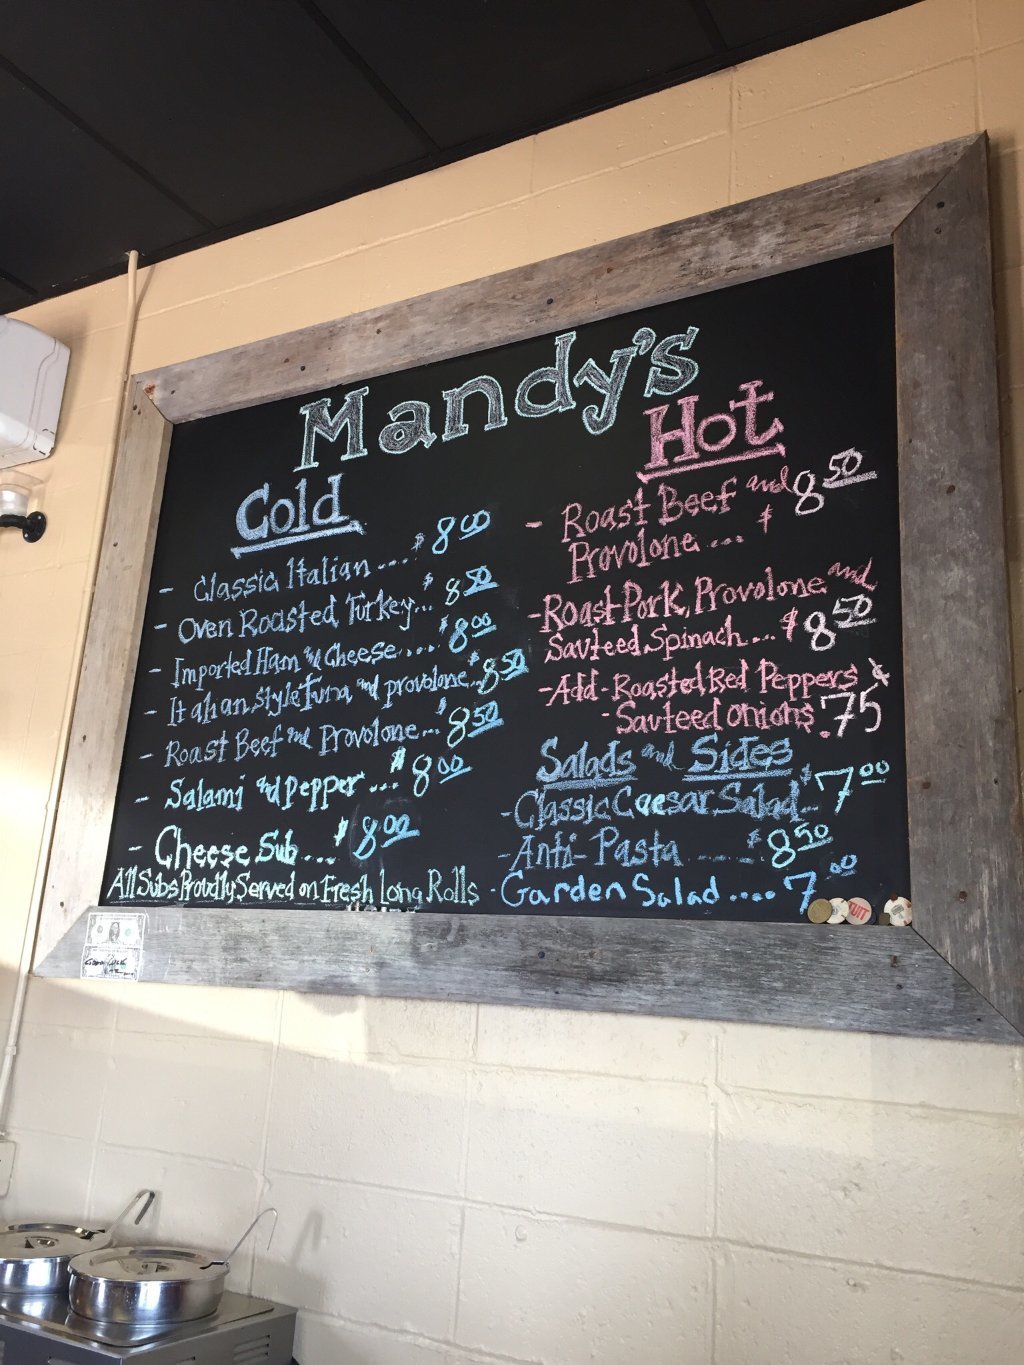 Mandy's
Cold
- Classic Italian.... $8.00
- Oven Roasted Turkey... $8.50
- Imported Ham and Cheese.... $8.00
- Italian style Tuna and provolone... $8.50
- Roast Beef and Provolone... $8.50
- Salami and Pepper... $8.00
- Cheese Sub... $8.00
All Subs Proudly Served on Fresh Long Rolls
Hot
- Roast Beef and
Provolone... $8.50
- Roast Pork, Provolone and
Sauteed Spinach... $8.50
- Add - Roasted Red Peppers &
- Sauteed onions .75
Salads and Sides
- Classic Caesar Salad... $7.00
- Anti-Pasta ..... $8.50
- Garden Salad .... 7.00
TUIT
Good Luck